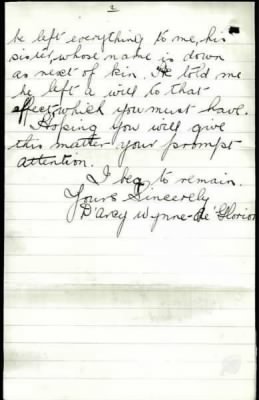 2
he left everything to me, his
sister, whose name is down
as next of kin. He told me
he left a will to that
effect, which you must have.
Hoping you will give
this matter your prompt
attention.
I beg to remain.
Yours Sincerely
D'Arcy Wynne-